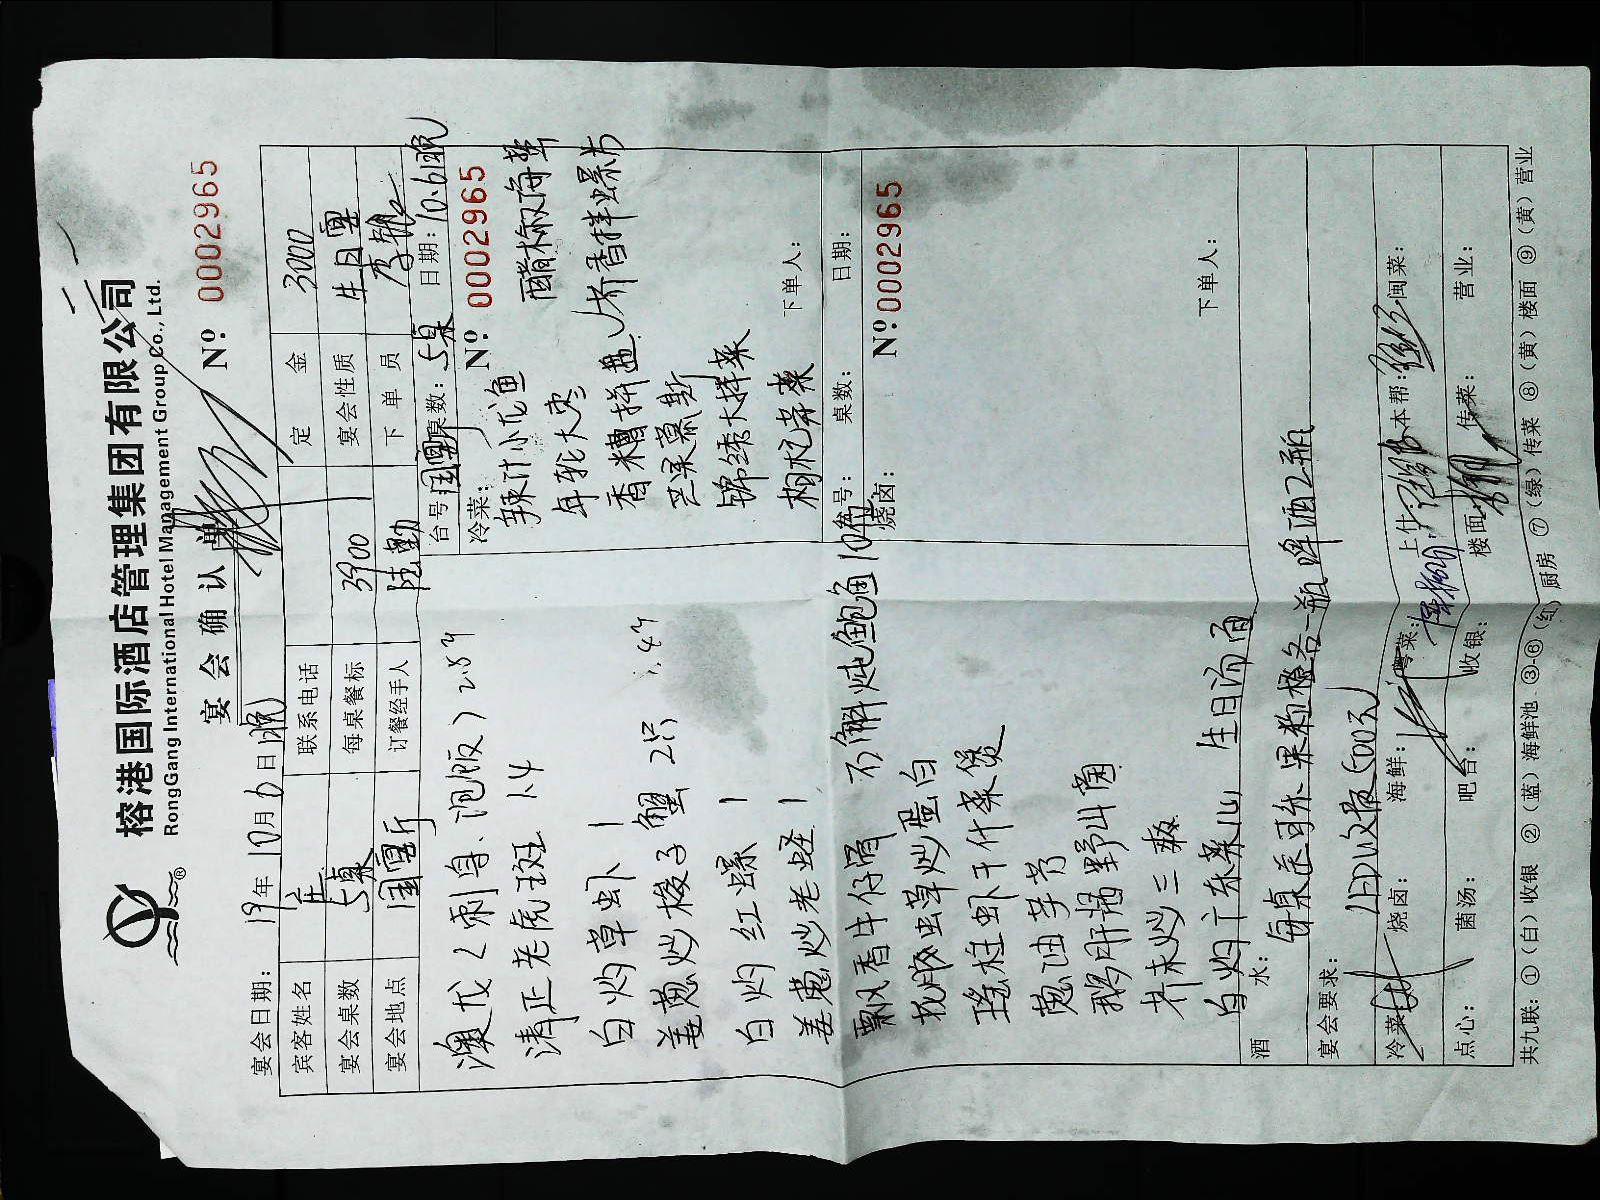 榕港国际酒店管理集团有限公司
RongGang International Hotel Management Group Co., Ltd.
®
宴会确认单
Nº: 0002965
宴会日期: 19年10月6日晚
宾客姓名 联系电话 定金 3000
宴会桌数 5桌 每桌餐标 3900 宴会性质 生日宴
宴会地点 国宴厅 订餐经手人 陆勤 下单员
台号: 国宴厅 桌数: 5桌 日期: 10.6晚
冷菜: Nº 0002965
澳龙(刺身、泡饭) 2.8斤
清正老虎斑 1.4
白灼草虾 1
姜葱炒梭子蟹 2只 1.4斤
白灼红螺 1
姜葱炒老蛏 1
飘香牛仔骨
石斛炖鲍鱼10份
抚脷虫草炒蛋白
瑶柱虾干什菜煲
葱油芋艿
鹅肝酱野山菌
芥末炒三蔬
白灼广东菜心
生日汤面
辣汁小龙鱼
年轮大枣
香糟拼盘
芝果慕斯
锦绣大拌菜
枸杞芹菜
醋椒海蜇
芥香拌螺片
下单人:
台号: 桌数: 日期:
烧卤: Nº: 0002965
下单人:
酒水: 每桌送可乐果粒橙各一瓶 啤酒2瓶
宴会要求: LED收费500元
冷菜: 烧卤: 海鲜: 粤菜: 上什: 本帮: 闽菜:
点心: 菌汤: 吧台: 收银: 楼面: 传菜: 营业:
共九联: ①(白)收银 ②(蓝)海鲜池 ③-⑥(红)厨房 ⑦(绿)传菜 ⑧(黄)楼面 ⑨(黄)营业